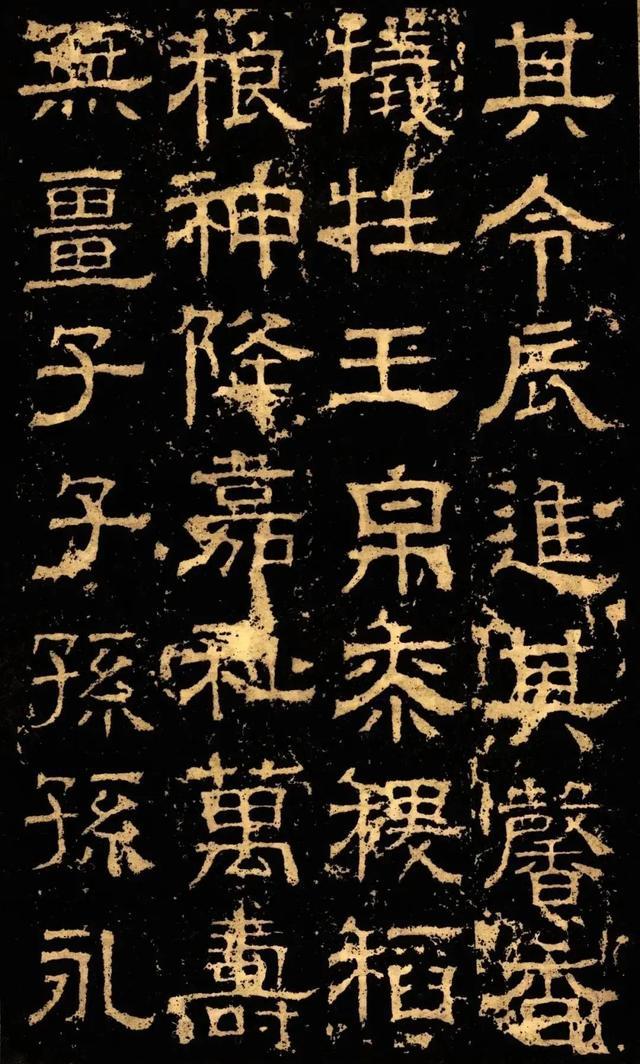 其令辰進其馨香
犧牲玉帛黍稷稻
稂神降嘉祉萬壽
無畺子子孫孫永